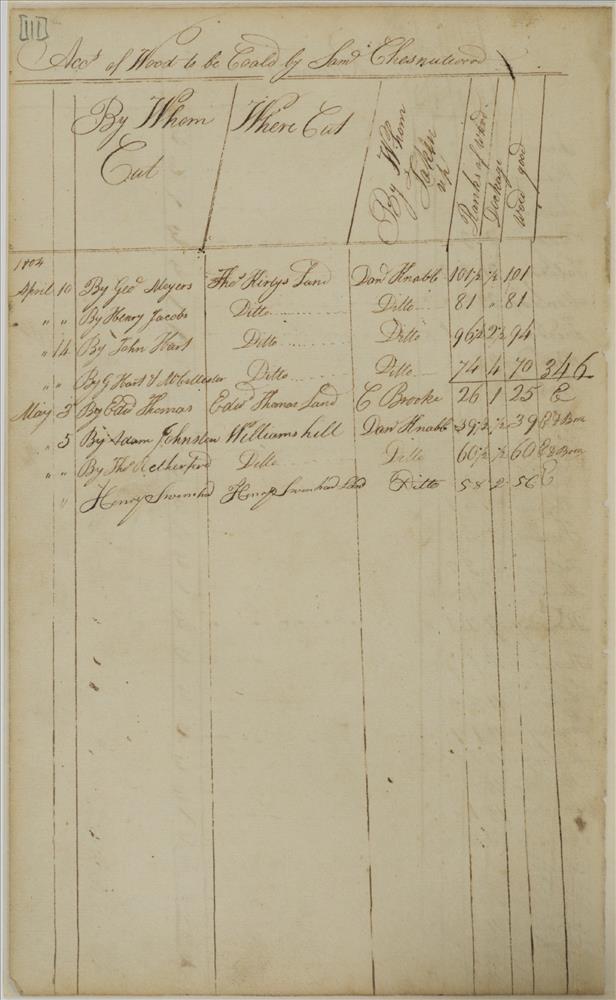 [111]
Acct of Wood to be Coald by Saml Chesnutwood
By Whom Cut Where Cut By Whom Taken up Ranks of wood Dockage Wood good
1804
April 10 By Geo Meyers Thos Kirbys Land Danl Knabb 101½ ½ 101
" " By Henry Jacobs Ditto Ditto 81 " 81
" 14 By John Hart Ditto Ditto 96½ 2½ 94
" " By G Hart & Ditto Ditto 74 4 70 346
May 3 By Edwd Thomas Edwd Thomas Land C Brooke 26 1 25 E
" 5 By Adam Johnston Williams hill Danl Knabb 39½ ½ 39 E &
" " By Thos Rutherford Ditto Ditto 60½ ½ 60 E &
" Henry Swenhart Henry Swenhart Land Ditto 58 2 56 E